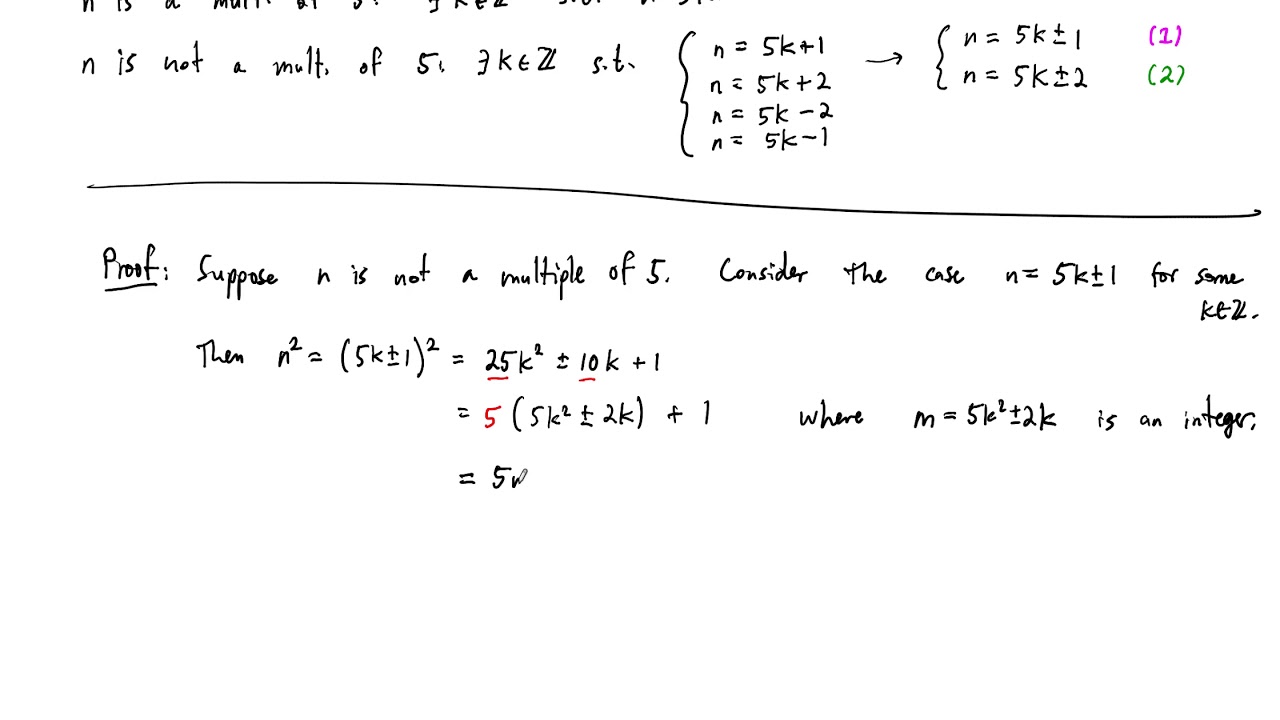 n is a mult. of 5: ∃ k ∈ ℤ s.t.
n is not a mult. of 5: ∃ k ∈ ℤ s.t. { n = 5k+1 → { n = 5k ± 1 (1)
n = 5k+2 n = 5k ± 2 (2)
n = 5k-2
n = 5k-1
Proof: Suppose n is not a multiple of 5. Consider the case n = 5k±1 for some
k∈ℤ.
Then n² = (5k±1)² = 25k² ± 10k + 1
= 5 (5k² ± 2k) + 1 where m = 5k²±2k is an integer.
= 5